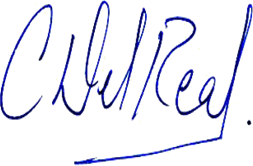 C Del Real.